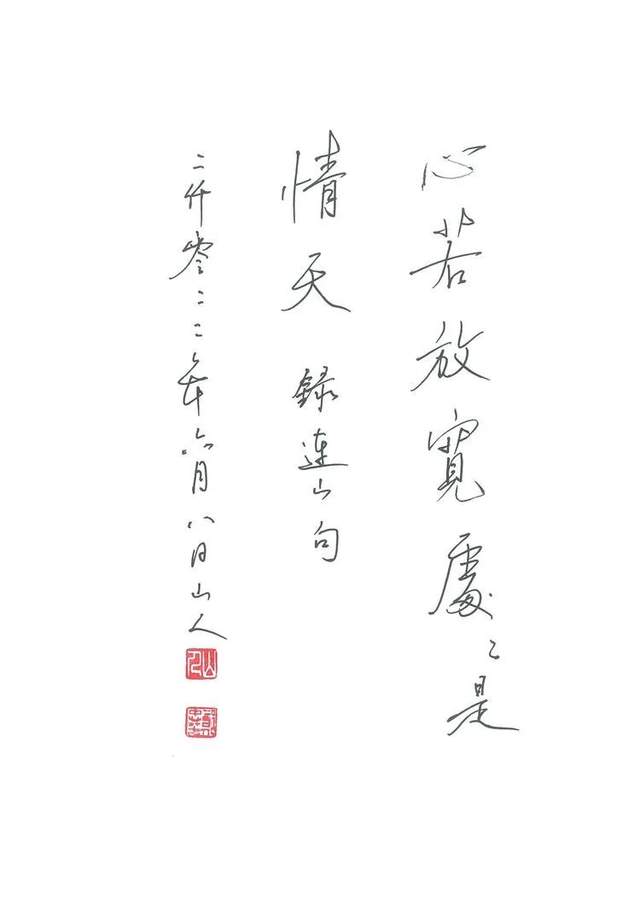 心若放寬處〻是
情天 錄連山句
二仟零二二年六月八日山人